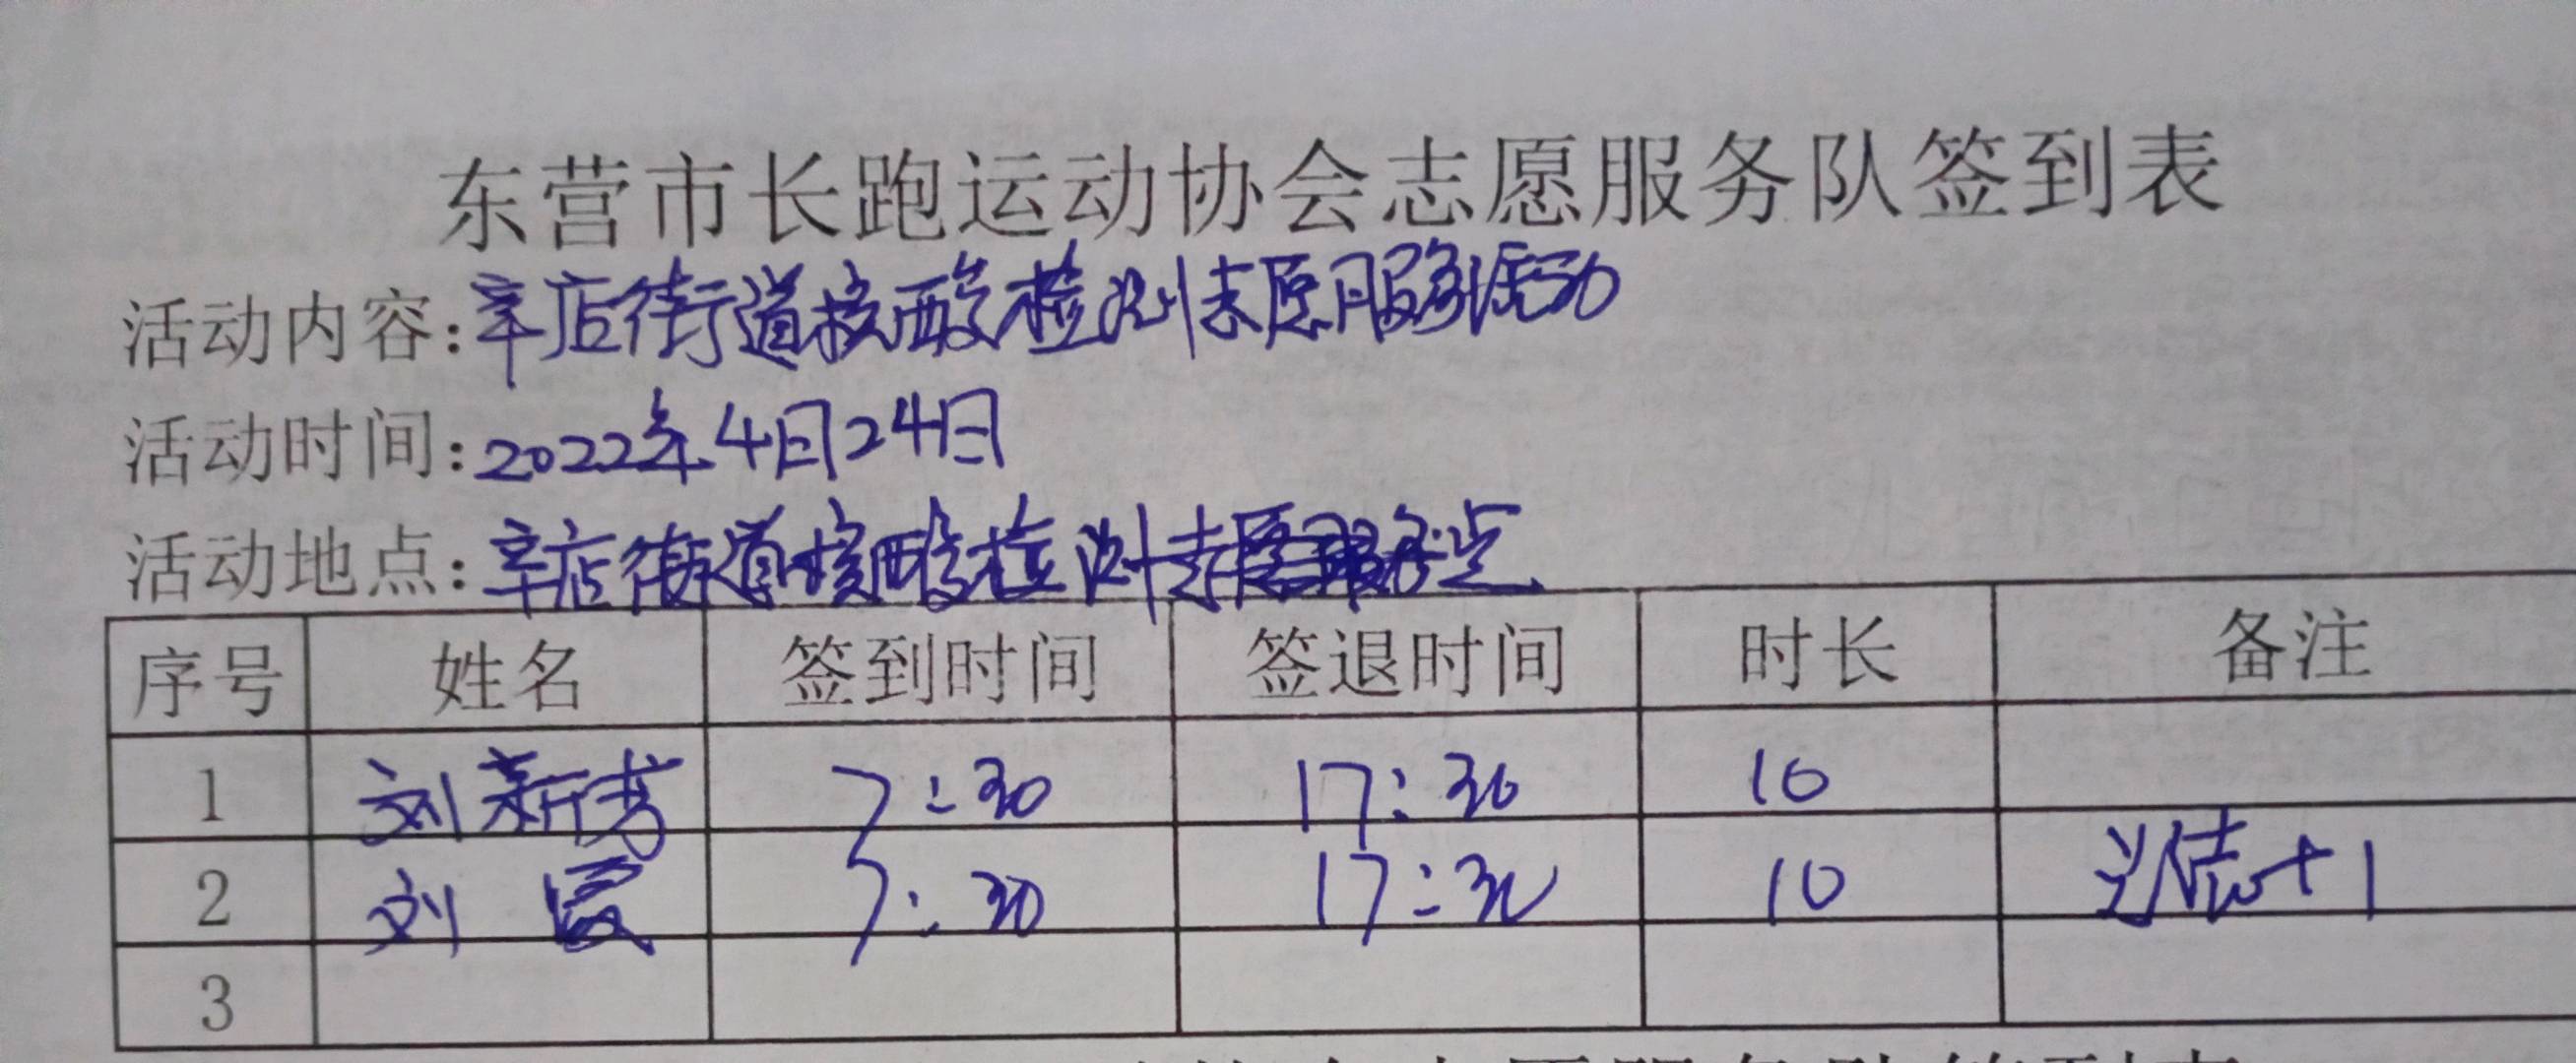 东营市长跑运动协会志愿服务队签到表
活动内容:辛店街道核酸检测志愿服务活动
活动时间:2022年4月24日
活动地点:辛店街道核酸检测志愿服务点
序号 姓名 签到时间 签退时间 时长 备注
1 刘新芳 7:30 17:30 10
2 刘霞 7:30 17:30 10 +1
3